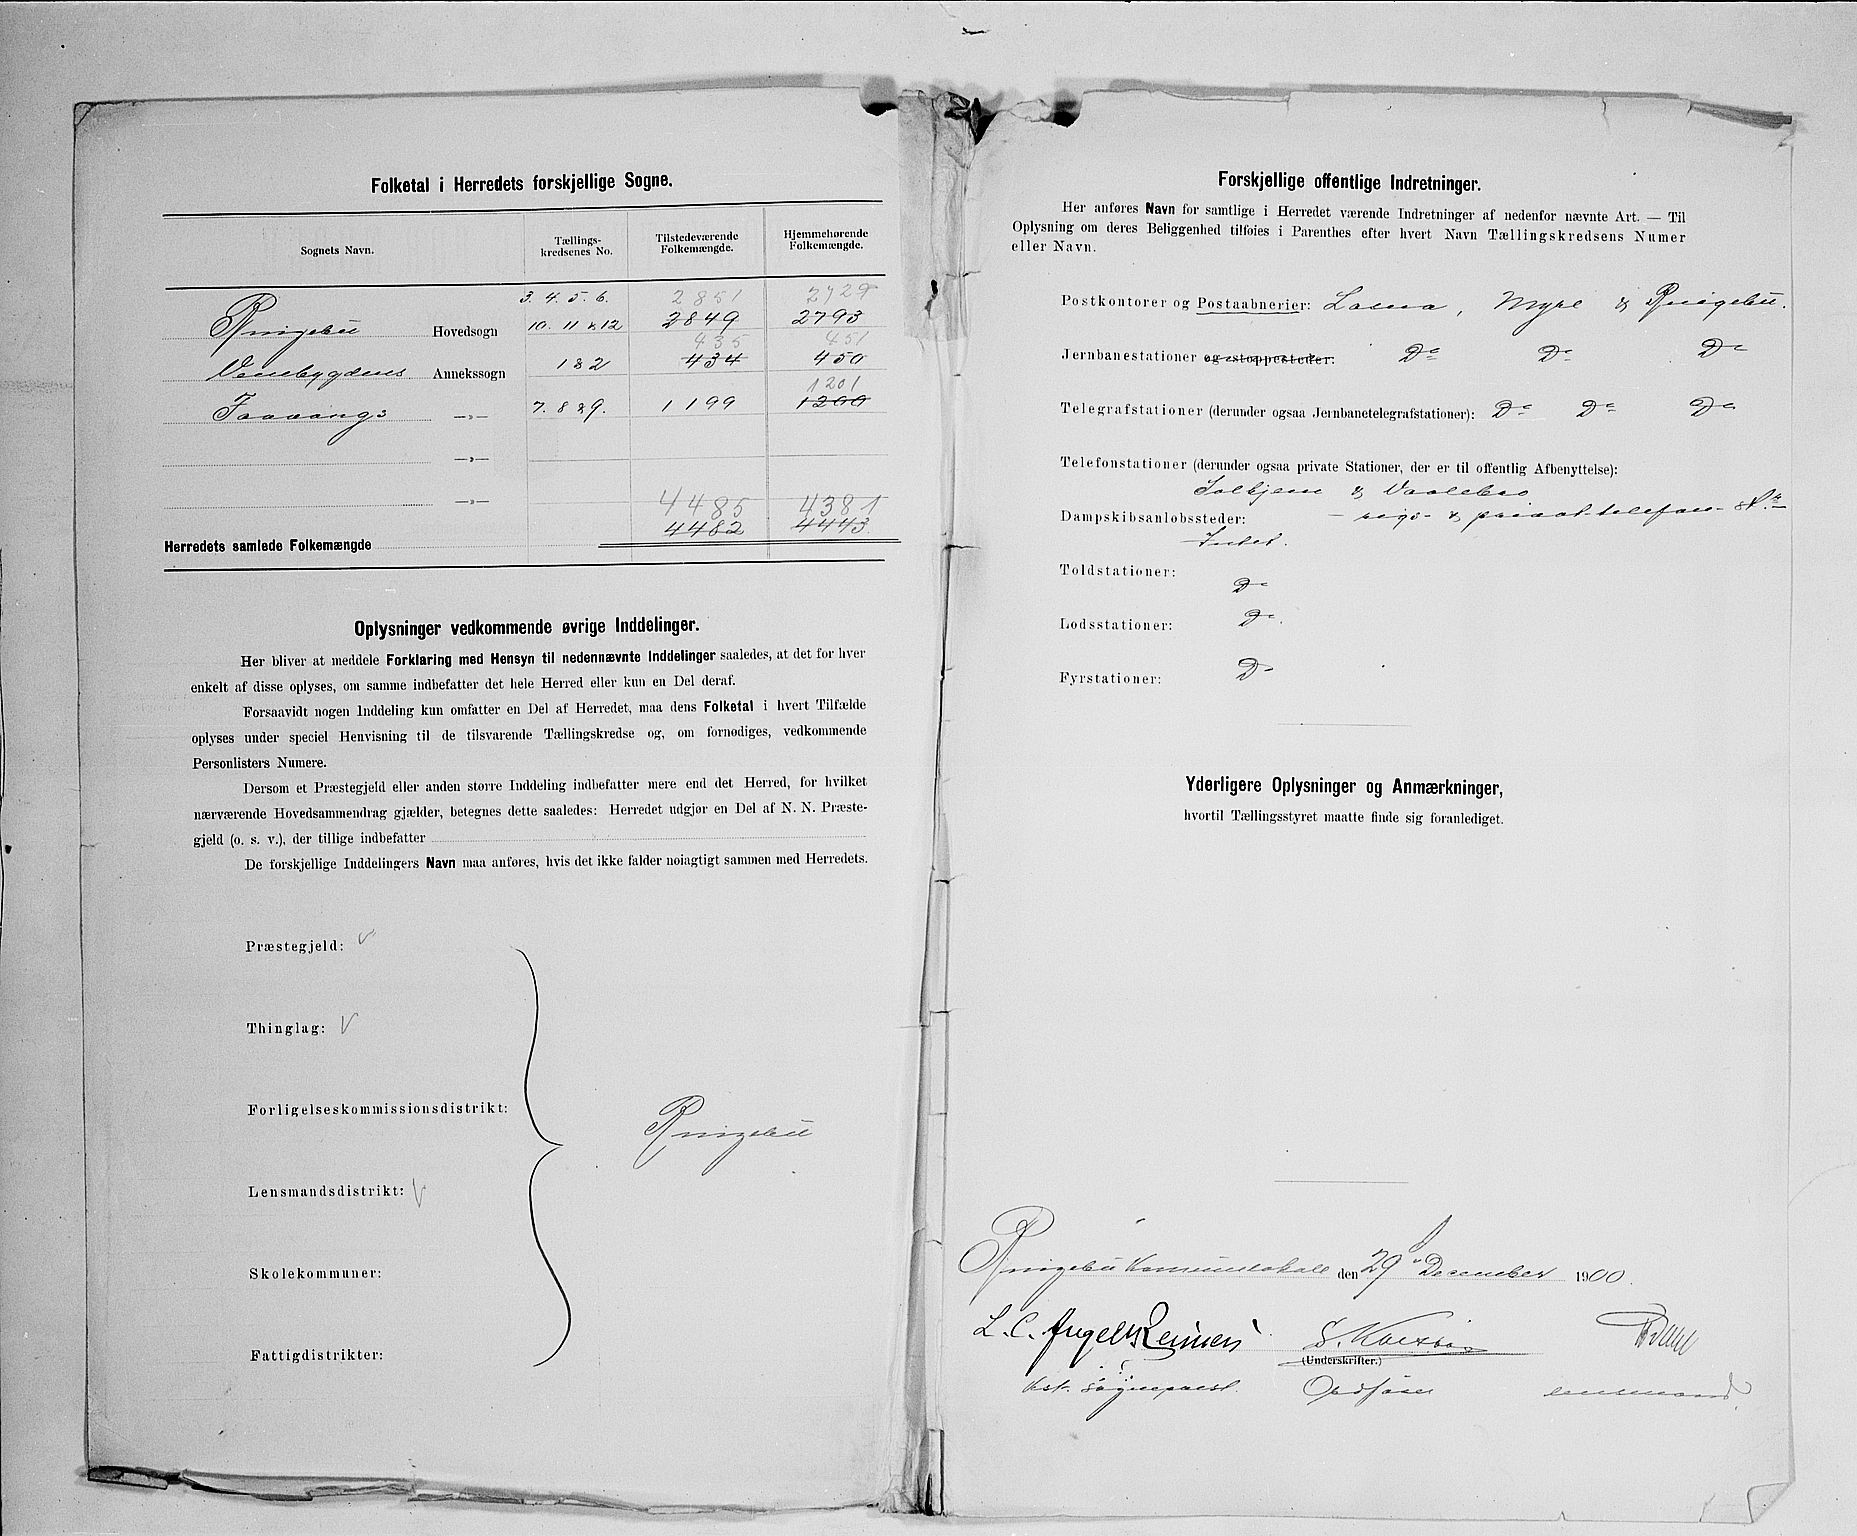 Folketal i Herredets forskjellige Sogne.
Sognets Navn. Tællings-kredsenes No. Tilstedeværende Folkemængde. Hjemmehørende Folkemængde.
3. 4. 5. 6. 2851 2729
Ringebu Hovedsogn 10. 11 & 12 2849 2793
435 451
Venebygdens Annekssogn 1 & 2 434 450
1201
Faavangs —»— 7. 8 & 9. 1199 1200
—»—
—»— 4485 4381
4482 4443
Herredets samlede Folkemængde
Oplysninger vedkommende øvrige Inddelinger.
Her bliver at meddele Forklaring med Hensyn til nedennævnte Inddelinger saaledes, at det for hver
enkelt af disse oplyses, om samme indbefatter det hele Herred eller kun en Del deraf.
Forsaavidt nogen Inddeling kun omfatter en Del af Herredet, maa dens Folketal i hvert Tilfælde
oplyses under speciel Henvisning til de tilsvarende Tællingskredse og, om fornødiges, vedkommende
Personlisters Numere.
Dersom et Præstegjeld eller anden større Inddeling indbefatter mere end det Herred, for hvilket
nærværende Hovedsammendrag gjælder, betegnes dette saaledes: Herredet udgjør en Del af N. N. Præste-
gjeld (o. s. v.), der tillige indbefatter
De forskjellige Inddelingers Navn maa anføres, hvis det ikke falder nøiagtigt sammen med Herredets.
Præstegjeld:
Thinglag:
Forligelseskommissionsdistrikt:
Ringebu
Lensmandsdistrikt:
Skolekommuner:
Fattigdistrikter:
Forskjellige offentlige Indretninger.
Her anføres Navn for samtlige i Herredet værende Indretninger af nedenfor nævnte Art. — Til
Oplysning om deres Beliggenhed tilføies i Parenthes efter hvert Navn Tællingskredsens Numer
eller Navn.
Postkontorer og Postaabnerier: Losna, Myre & Ringebu.
Jernbanestationer og stoppesteder: Do Do Do
Telegrafstationer (derunder ogsaa Jernbanetelegrafstationer): Do Do Do
Telefonstationer (derunder ogsaa private Stationer, der er til offentlig Afbenyttelse):
& Vaalebro
Dampskibsanløbssteder: — rigs- & privat-telefon-
Intet.
Toldstationer: Do
Lodsstationer: Do.
Fyrstationer: Do
Yderligere Oplysninger og Anmærkninger,
hvortil Tællingsstyret maatte finde sig foranlediget.
Ringebu Komunelokale den 29 December 1900.
L. C.
(Underskrifter.)
kst. Sogneprest. Ordfører lensmand.